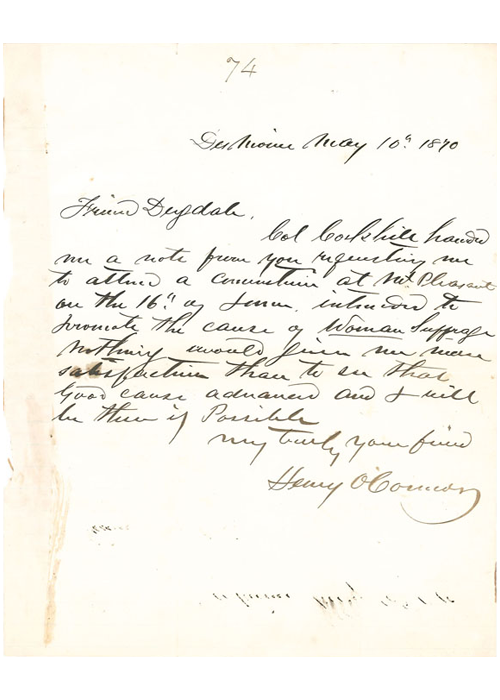 74
Des Moines May 10th 1870
Friend Dugdale,
Col Corkhill handed
me a note from you requesting me
to attend a convention at Mt Pleasant
on the 16th of June. intended to
promote the cause of Woman Suffrage
Nothing would give me more
satisfaction than to see that
Good cause advanced and I will
be there if Possible
truly your friend
Henry O'Connor